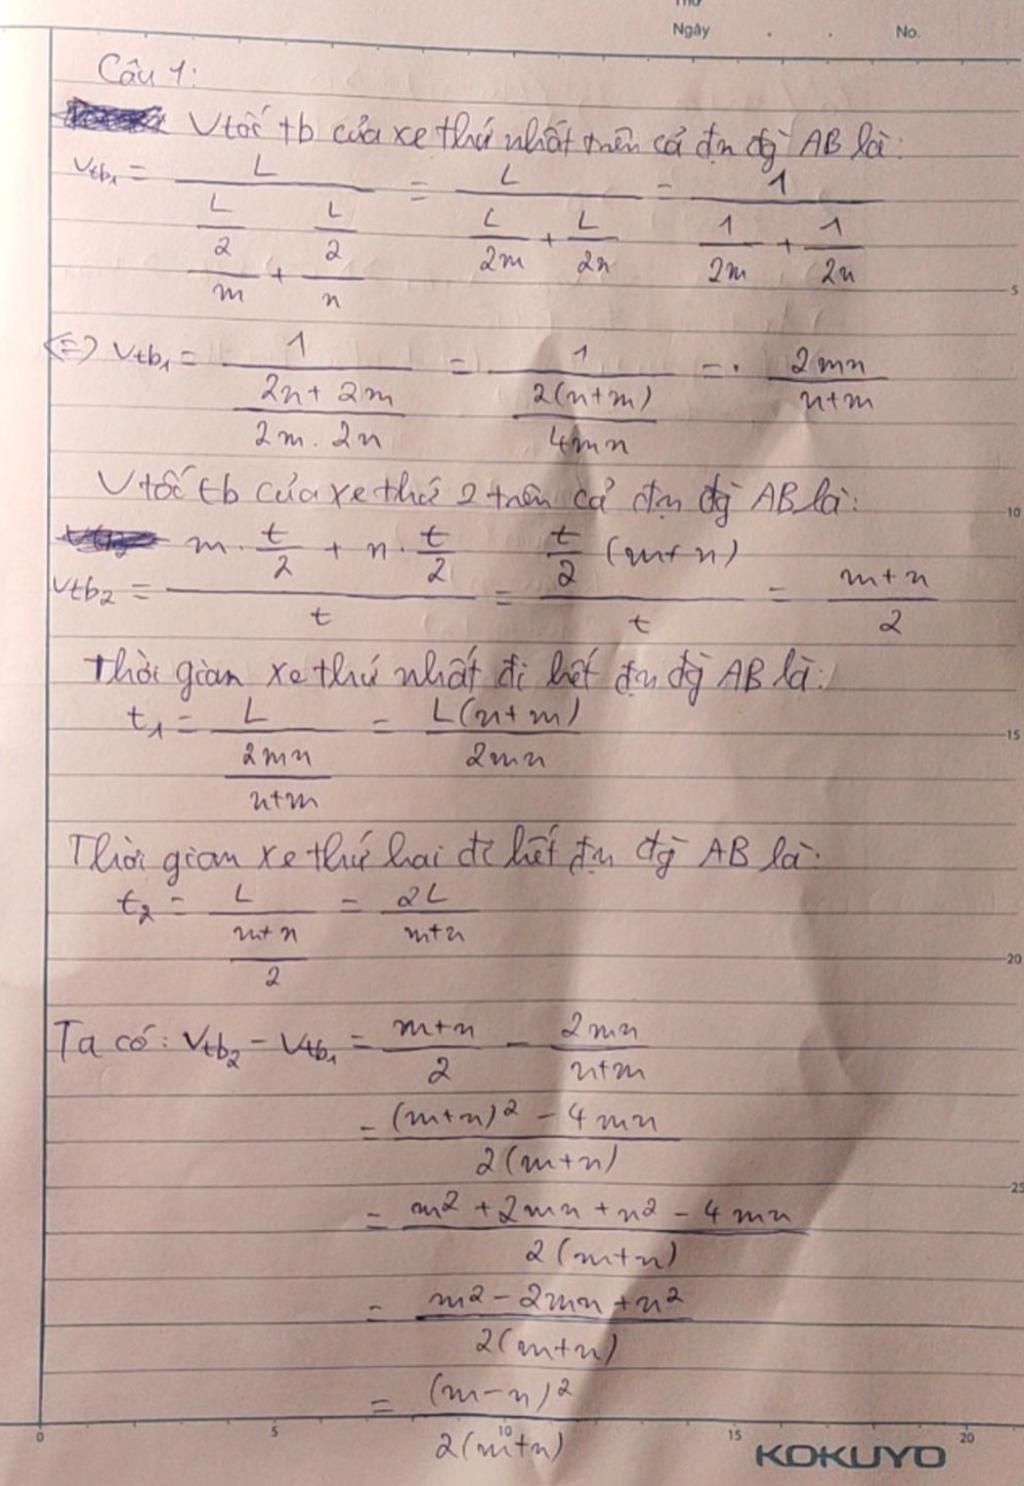 Thứ
Ngày . . No.
Câu 1:
Vtốc tb của xe thứ nhất trên cả đn đg̀ AB là:
Vtb₁ = L / ((L/2)/m + (L/2)/n) = L / (L/2m + L/2n) = 1 / (1/2m + 1/2n)
5
(=) Vtb₁ = 1 / ((2n + 2m)/(2m . 2n)) = 1 / (2(n+m)/4mn) = . 2mn/(n+m)
Vtốc tb của xe thứ 2 trên cả đn đg̀ AB là:
10
Vtb₂ = (m . t/2 + n . t/2) / t = (t/2 (m+n)) / t = (m+n)/2
Thời gian xe thứ nhất đi hết đn đg̀ AB là:
t₁ = L / (2mn/(n+m)) = L(n+m)/2mn
15
Thời gian xe thứ hai đi hết đn đg̀ AB là:
t₂ = L / ((m+n)/2) = 2L/(m+n)
20
Ta có: Vtb₂ - Vtb₁ = (m+n)/2 - 2mn/(n+m)
= ((m+n)² - 4mn) / 2(m+n)
25
= (m² + 2mn + n² - 4mn) / 2(m+n)
= (m² - 2mn + n²) / 2(m+n)
= (m-n)² / 2(m+n)
0 5 10 15 20
KOKUYO